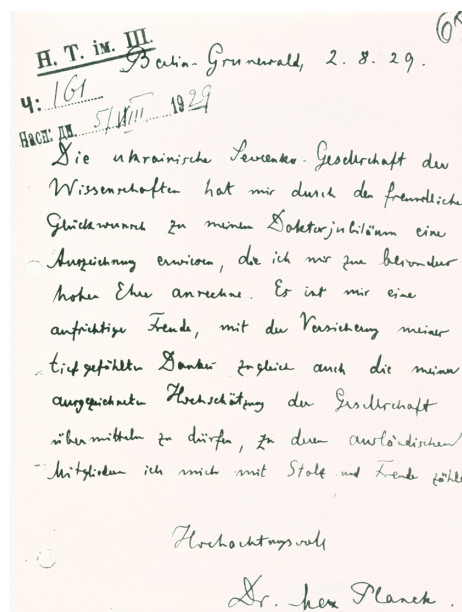 6
Н. Т. ім. Ш.
Berlin-Grunewald, 2. 8. 29.
Ч: 161
Насп: дн. 5/VIII 1929
Die ukrainische Sevcenko-Gesellschaft der
Wissenschaften hat mir durch den freundliche
Glückwunsch zu meinem Doktorjubiläum eine
Auszeichnung erwiesen, die ich mir zur besonder
hohen Ehre anrechne. Es ist mir eine
aufrichtige Freude, mit der Versicherung meines
tiefgefühlten Dankes zugleich auch die meiner
ausgezeichneten Hochschätzung der Gesellschaft
übermitteln zu dürfen, zu deren ausländischen
Mitgliedern ich mich mit Stolz und Freude zähle
Hochachtungsvoll
Dr. Max Planck.